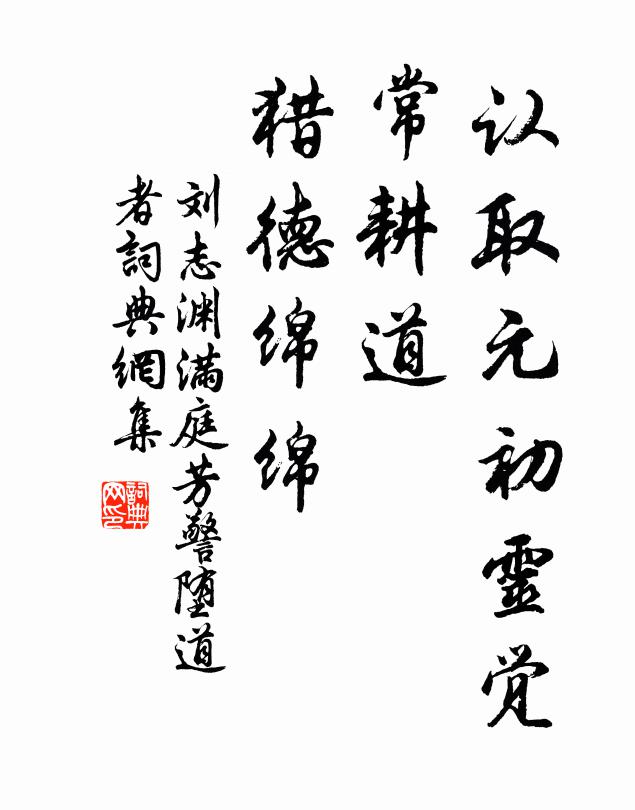 认取元初靈觉
常耕道
猎德绵绵
刘志渊满庭芳警堕道
者詞典網集
詞典网印